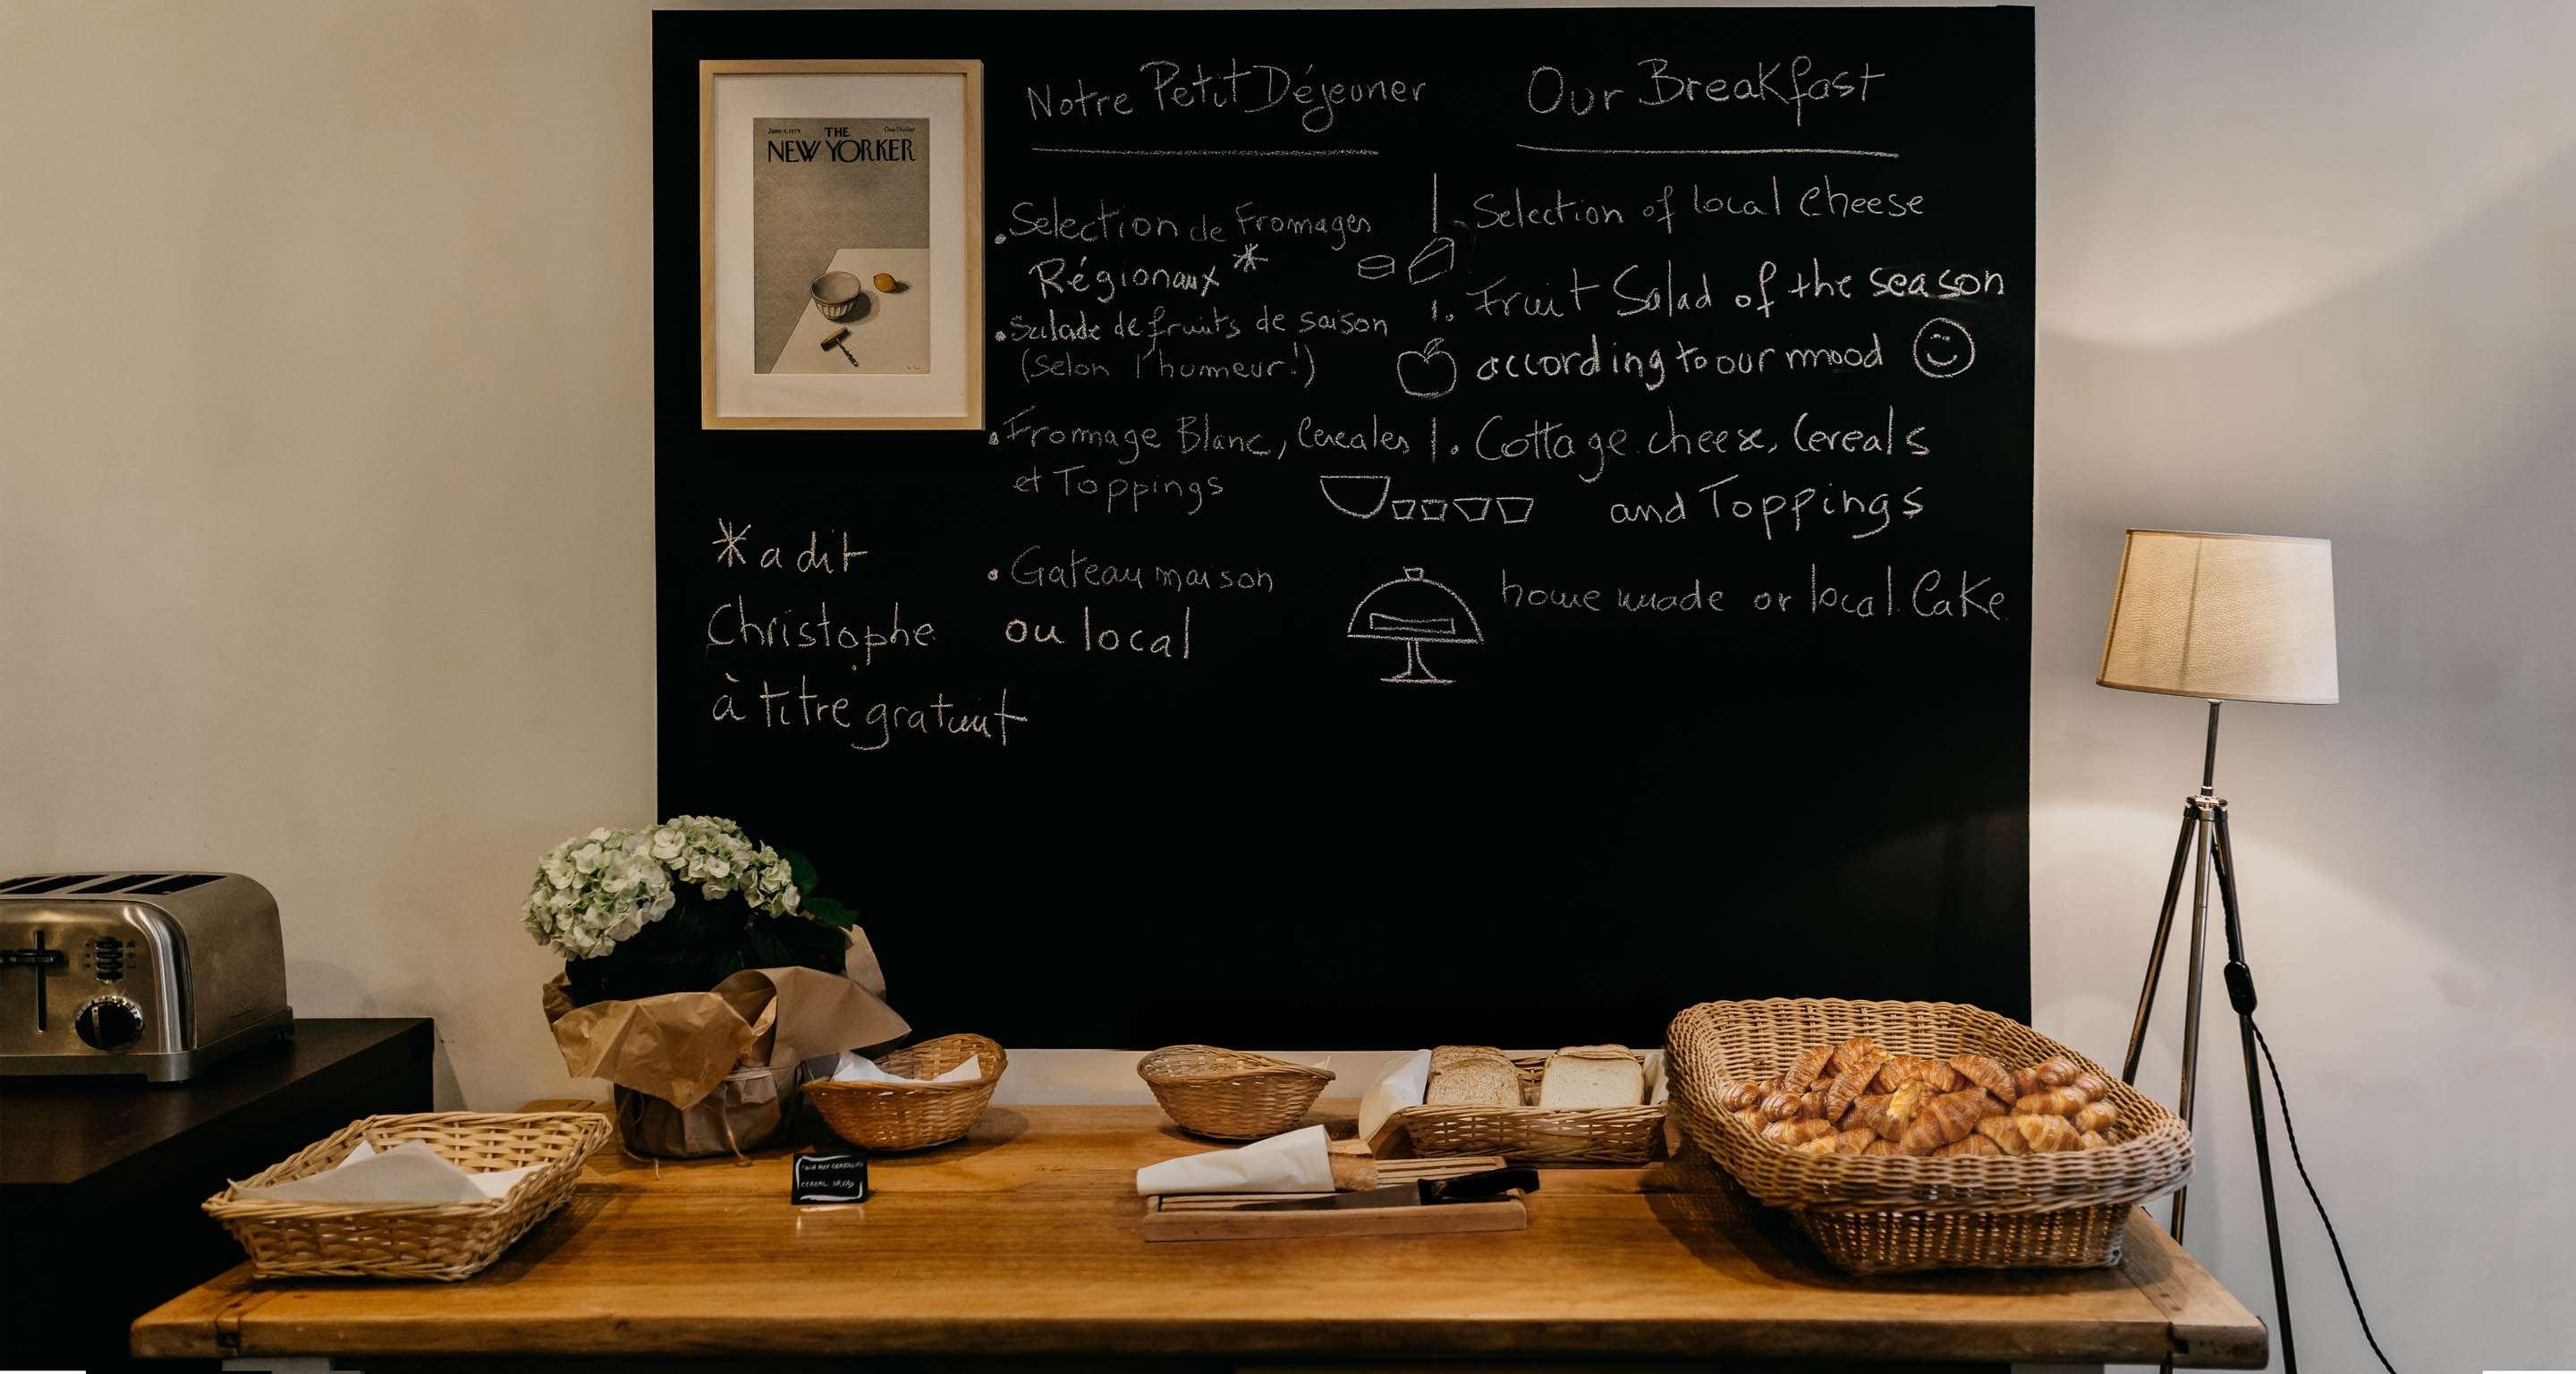 June 4, 1979 THE One Dollar
NEW YORKER
Notre Petit Déjeuner
. Selection de Fromages
Régionaux *
. Salade de fruits de saison
(Selon l'humeur!)
. Fromage Blanc, Cereales
et Toppings
. Gateau maison
ou local
* a dit
Christophe
à titre gratuit
Our Breakfast
. Selection of local cheese
. Fruit Salad of the season
according to our mood
. Cottage cheese, Cereals
and Toppings
home made or local Cake
CEREAL